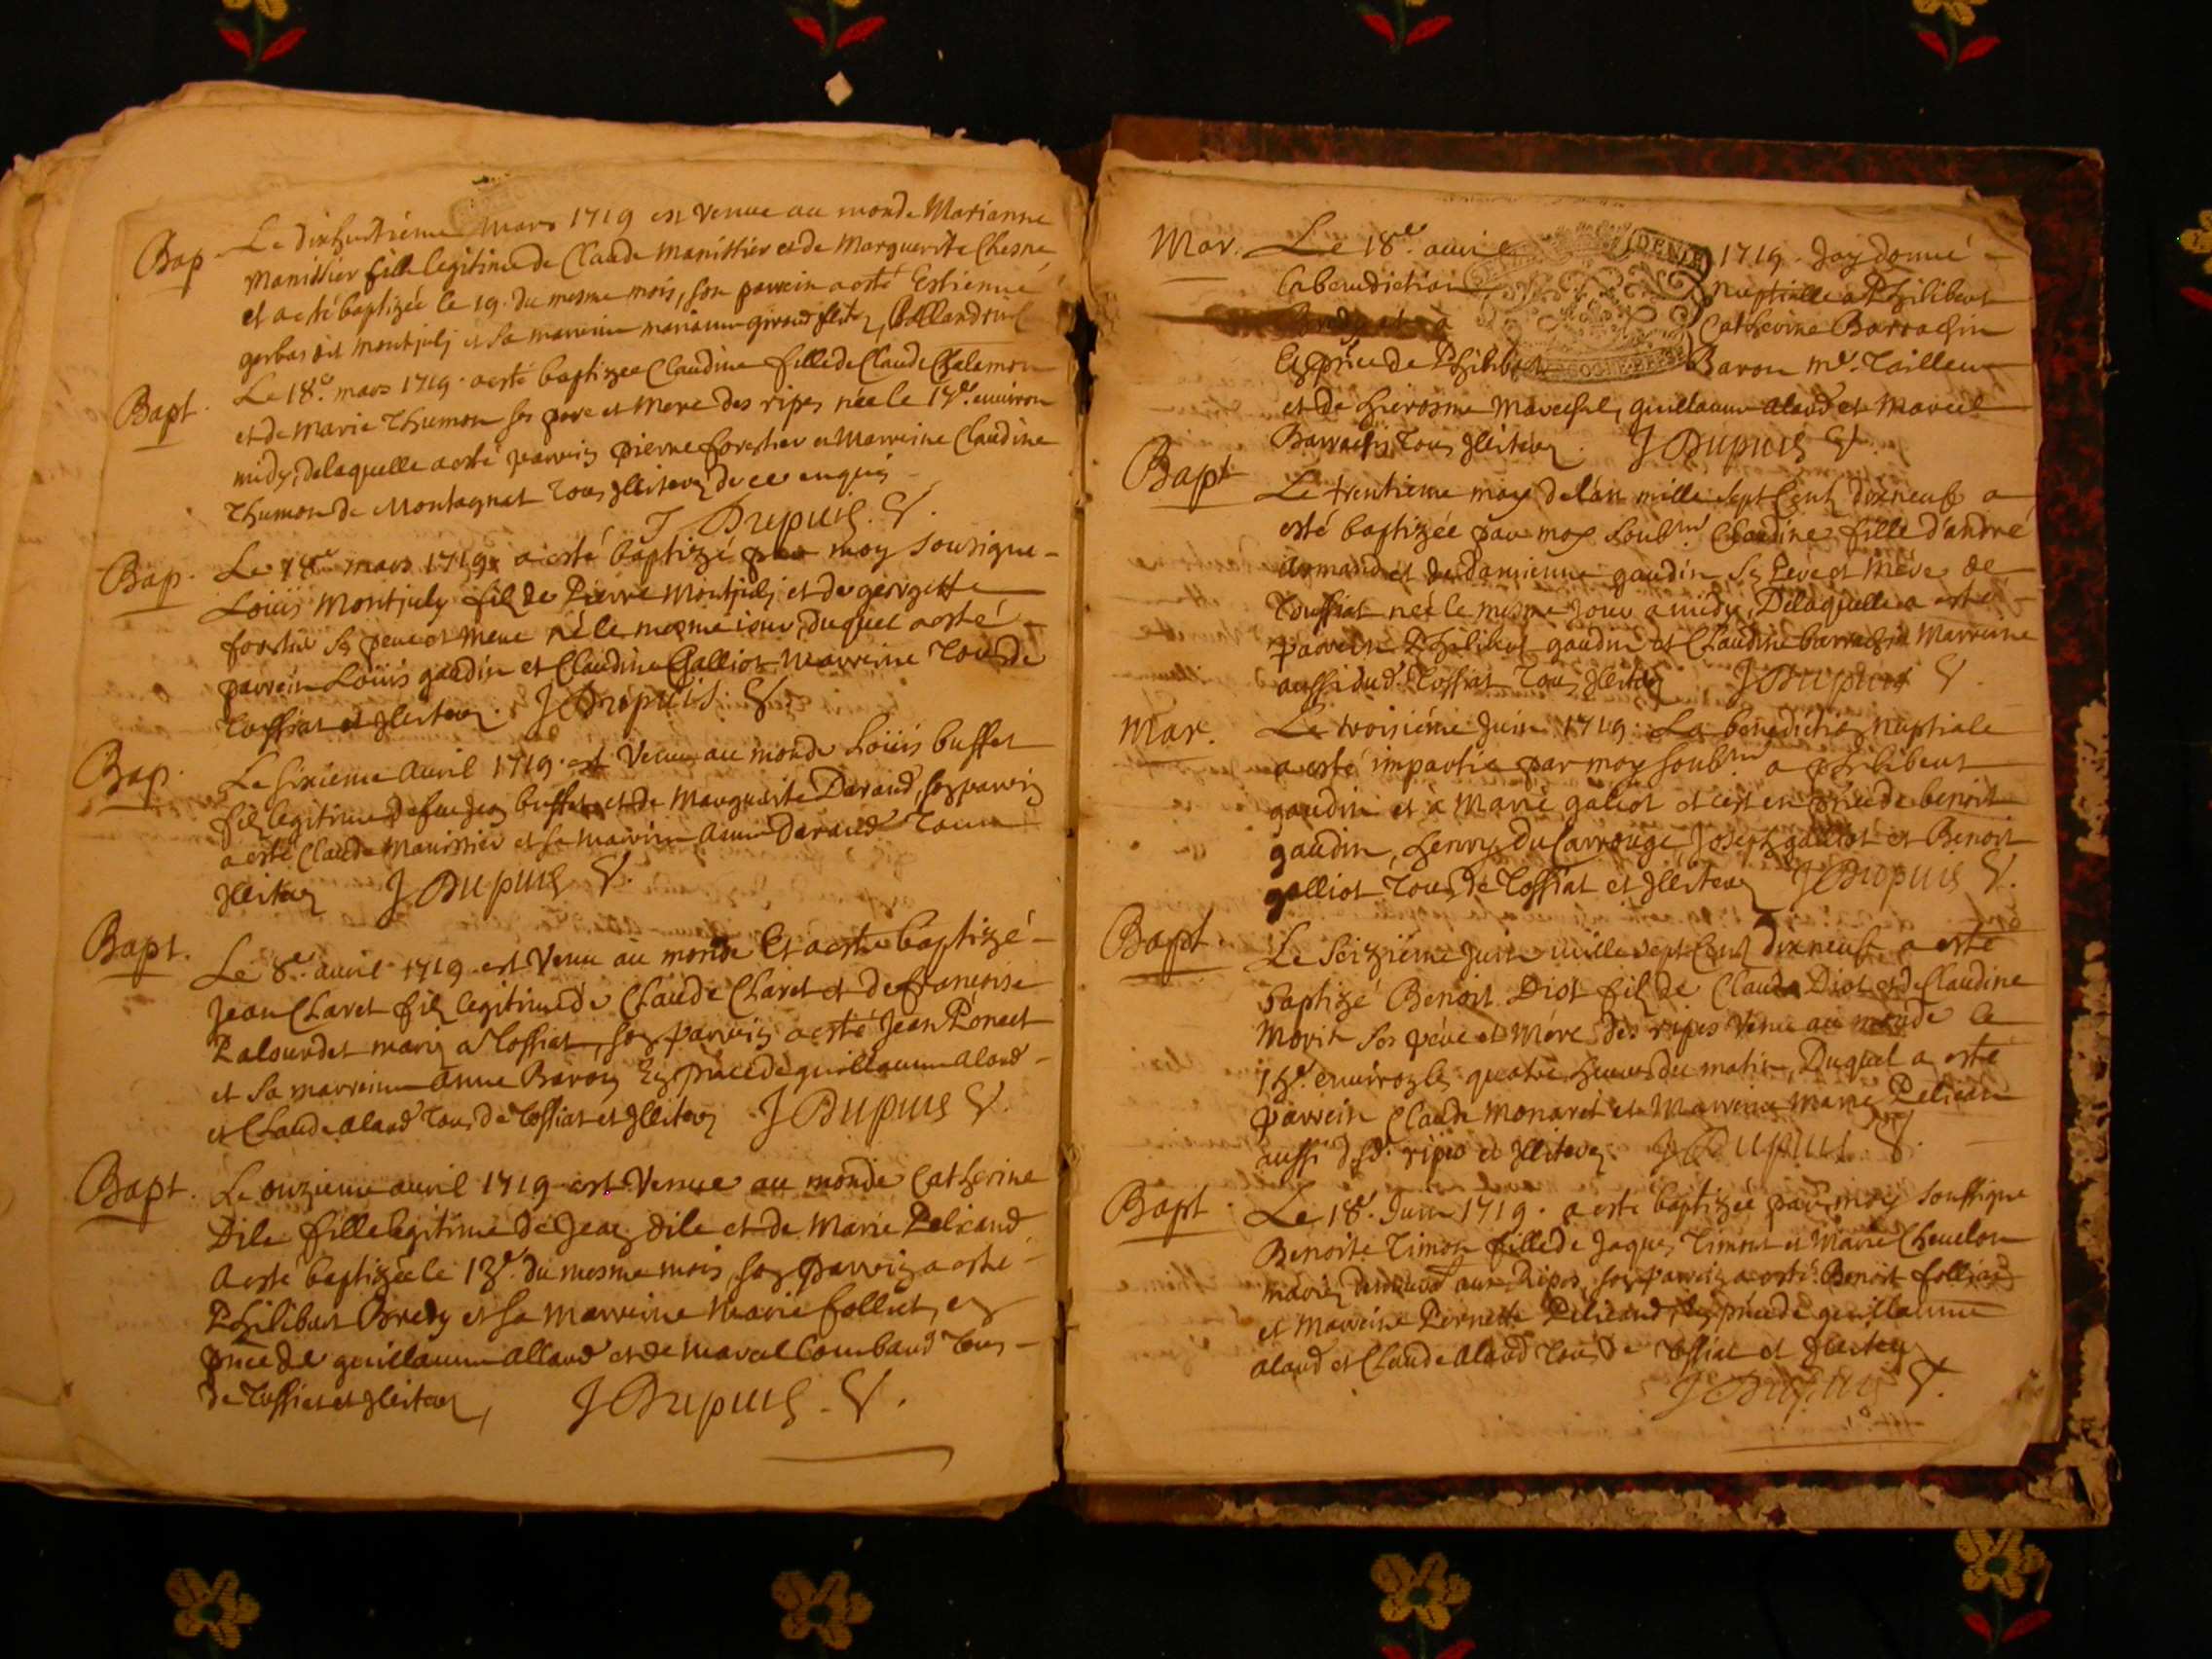 Bap. Le dixhuitiéme mars 1719 est venue au monde Marianne
Manissier fille legitime de Claude manissier et de Marguerite Chesne
et a esté baptizée le 19. du mesme mois, son parrein a esté Estienne
gerbas dit montjuly et sa marreine
Bapt. Le 18e. mars 1719. a esté baptizee Claudine fille de Claude Chalamon
et de Marie Thumon ses pere et mere des ripes née le 17e. environ
midy, delaquelle a esté parrein pierre forestier et Marreine Claudine
Thumon de Montagnat tous jllitere de ce enquis
J Dupuis V.
Bap. Le 18e mars 1719. a esté baptizé par moy sousigne
Loüis Montjuly filz de Pierre Montjuly et de georgette
forestier ses pere et mere né le mesme iour, duquel a esté
parrein Loüis gaudin et Claudine Galliot Marreine tous de
Tossiat et jlliterez. J Dupuis. V.
Bap. Le sixieme auril 1719. est venu au monde Loüis buffet
filz legitime de feu Jean buffet et de Marguerite Darand, son parrein
a esté Claude Manissier et sa marreine anne Darand tous
jlliterez J Dupuis V.
Bapt. Le 8e. auril 1719 est venu au monde et a esté baptizé
Jean Charet filz legitime de Claude Charet et de françoise
Palourdet mariez a Tossiat, son parrein a esté Jean Poncet
et sa marreine anne Baron En pñce de guillaume alard
et Claude alard tous de Tossiat et jlliterez J Dupuis V.
Bapt. Le onzieme auril 1719 est venue au monde Catherine
Dile fille legitime de Jean dile et de Marie Pelicand
a esté baptizée le 13e. du mesme mois, son parrein a esté
Philibert Bredy et sa marreine Marie folliet, en
pñce de guillaume allard et de marcel Combaud tous
de Tossiat et jlliterez, J Dupuis. V.
Mar. Le 18e. auril 1719. Jay donné
la benediction nuptialle a Philibert
Bredy et a Catherine Barrachin
En pñce de Philibert Baron me. Tailleur
et de hierosme Marechal, guillaume alard et Marcel
Barrachin tous jlliterez. J Dupuis V.
Bapt. Le trentieme may de l'an mille sept cent dixneuf a
esté baptizée par moy soubné Claudine fille d'andré
armand et de damienne gaudin ses Pere et Mére de
Toussiat née le mesme jour a midy, Delaquelle a esté
parrein Philibert gaudin et Claudine barrachin Marreine
aussi dud. Tossiat tous jlliterez J Dupuis V.
Mar. Le troisiéme Juin 1719. La benediction nuptiale
a esté impartie par moy soubné a Philibert
gaudin et a Marie galiot et c'est en pñce de benoit
gaudin, henry Du Carrouge, Joseph galliot et Benoit
galliot tous de Tossiat et jlliterez J Dupuis V.
Bapt. Le Seiziéme Juin mille sept cent dixneuf a esté
baptizé Benoit Diot filz de Claude Diot et de Claudine
Morin ses pére et Mére des ripes venu au monde le
environ les quatre heures du matin, Duquel a esté
parrein Claude Monaret et Marreine Marie Pelican
aussi desd. ripes et jlliterez. J Dupuis V.
Bapt. Le 18e. Juin 1719. a esté baptizée par moy soussigne
Benoite Timon fille de Jaques Timon et Marie Chevelon
mariez demeurant aux Ripes, son parrein a esté Benoit folliet
et Marreine Pernette Pelicand, En pñce de guillaume
alard et Claude alard tous de Tossiat et jlliterez
J Dupuis V.